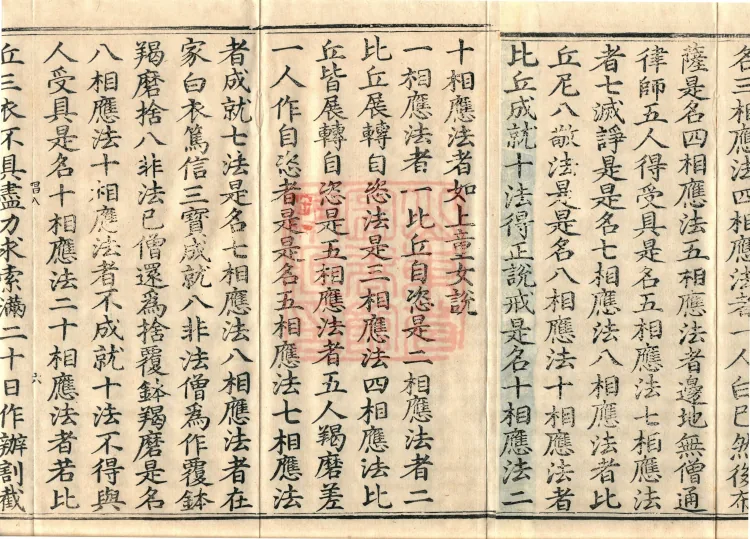 名三相應法四相應法者一人白已然後布
薩是名四相應法五相應法者邊地無僧通
律師五人得受具是名五相應法七相應法
者七滅諍是是名七相應法八相應法者比
丘尼八敬法是是名八相應法十相應法者
比丘成就十法得正説戒是名十相應法二
十相應法者如上童女説
一相應法者一比丘自恣是二相應法者二
比丘展轉自恣法是三相應法四相應法比
丘皆展轉自恣是五相應法者五人羯磨差
一人作自恣者是是名五相應法七相應法
者成就七法是名七相應法八相應法者在
家白衣篤信三寶成就八非法僧爲作覆鉢
羯磨捨八非法已僧還爲捨覆鉢羯磨是名
八相應法十相應法者不成就十法不得與
人受具是名十相應法二十相應法者若比
昌八 六
丘三衣不具盡力求索滿二十日作辦割截